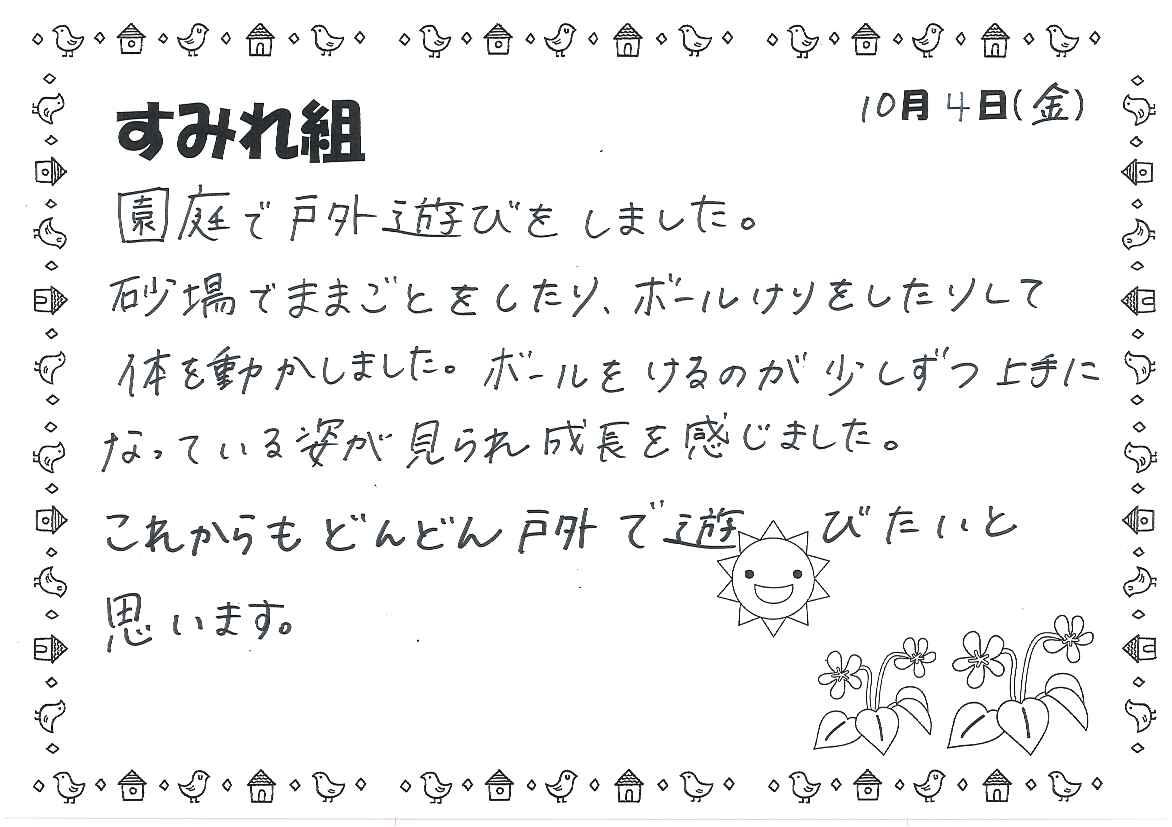 すみれ組
10月4日(金)
園庭で戸外遊びをしました。
砂場でままごとをしたり、ボールけりをしたりして
体を動かしました。ボールをけるのが少しずつ上手に
なっている姿が見られ成長を感じました。
これからもどんどん戸外で遊びたいと
思います。